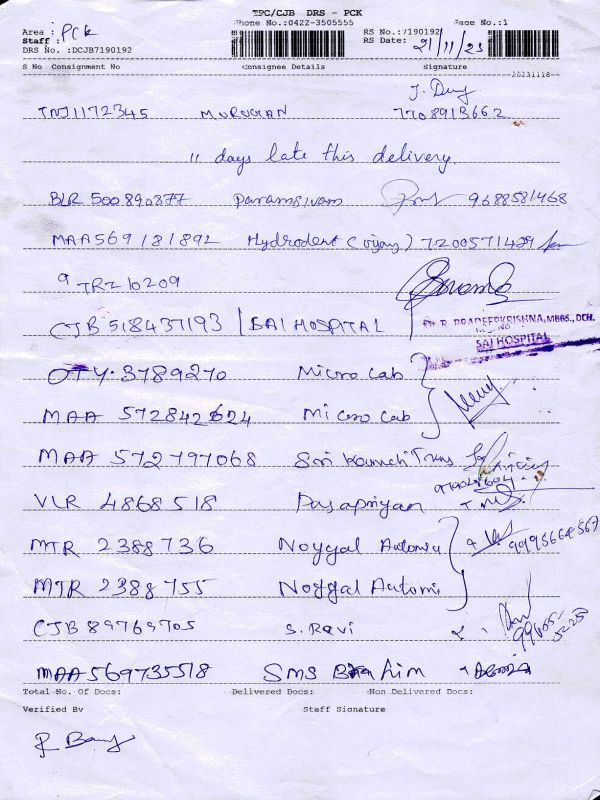 TPC/CJB DRS - PCK
Phone No.:0422-3505555 Page No.:1
Area : PCK RS No.:/190192
Staff : RS Date: 21/11/23
DRS No. :DCJB7190192
S No Consignment No Consignee Details Signature
20231118
TNJ1172345 MURUGAN 7708913662
11 days late this delivery.
BLR 500890377 Paramsivam 9688581468
MAA569181892 Hydrodent (vijay) 7200571429
9 TRZ 10209
CJB 518437193 | SAI HOSPITAL Dr. R. PRADEEPKRISHNA, MBBS., DCH.
SAI HOSPITAL
OTY. 3789270 Micro Lab
MAA 572842624 Micro Lab
MAA 572797068 Sri Kanchi Trans
VLR 4868518
MTR 2388736 Noyyal
MTR 2388755 Noyyal
CJB 89769705 S. Ravi
MAA569735518 SMS
Total No. Of Docs: Delivered Docs: Non Delivered Docs:
Verified By Staff Signature